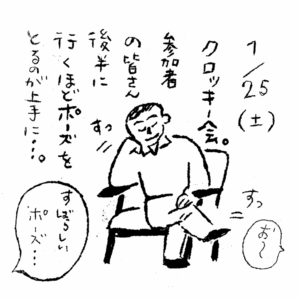 1/25(土)
クロッキー会。
参加者
の皆さん
後半に
行くほどポーズを
とるのが上手に…。
すっ
すっ
お〜
すばらしい
ポーズ…